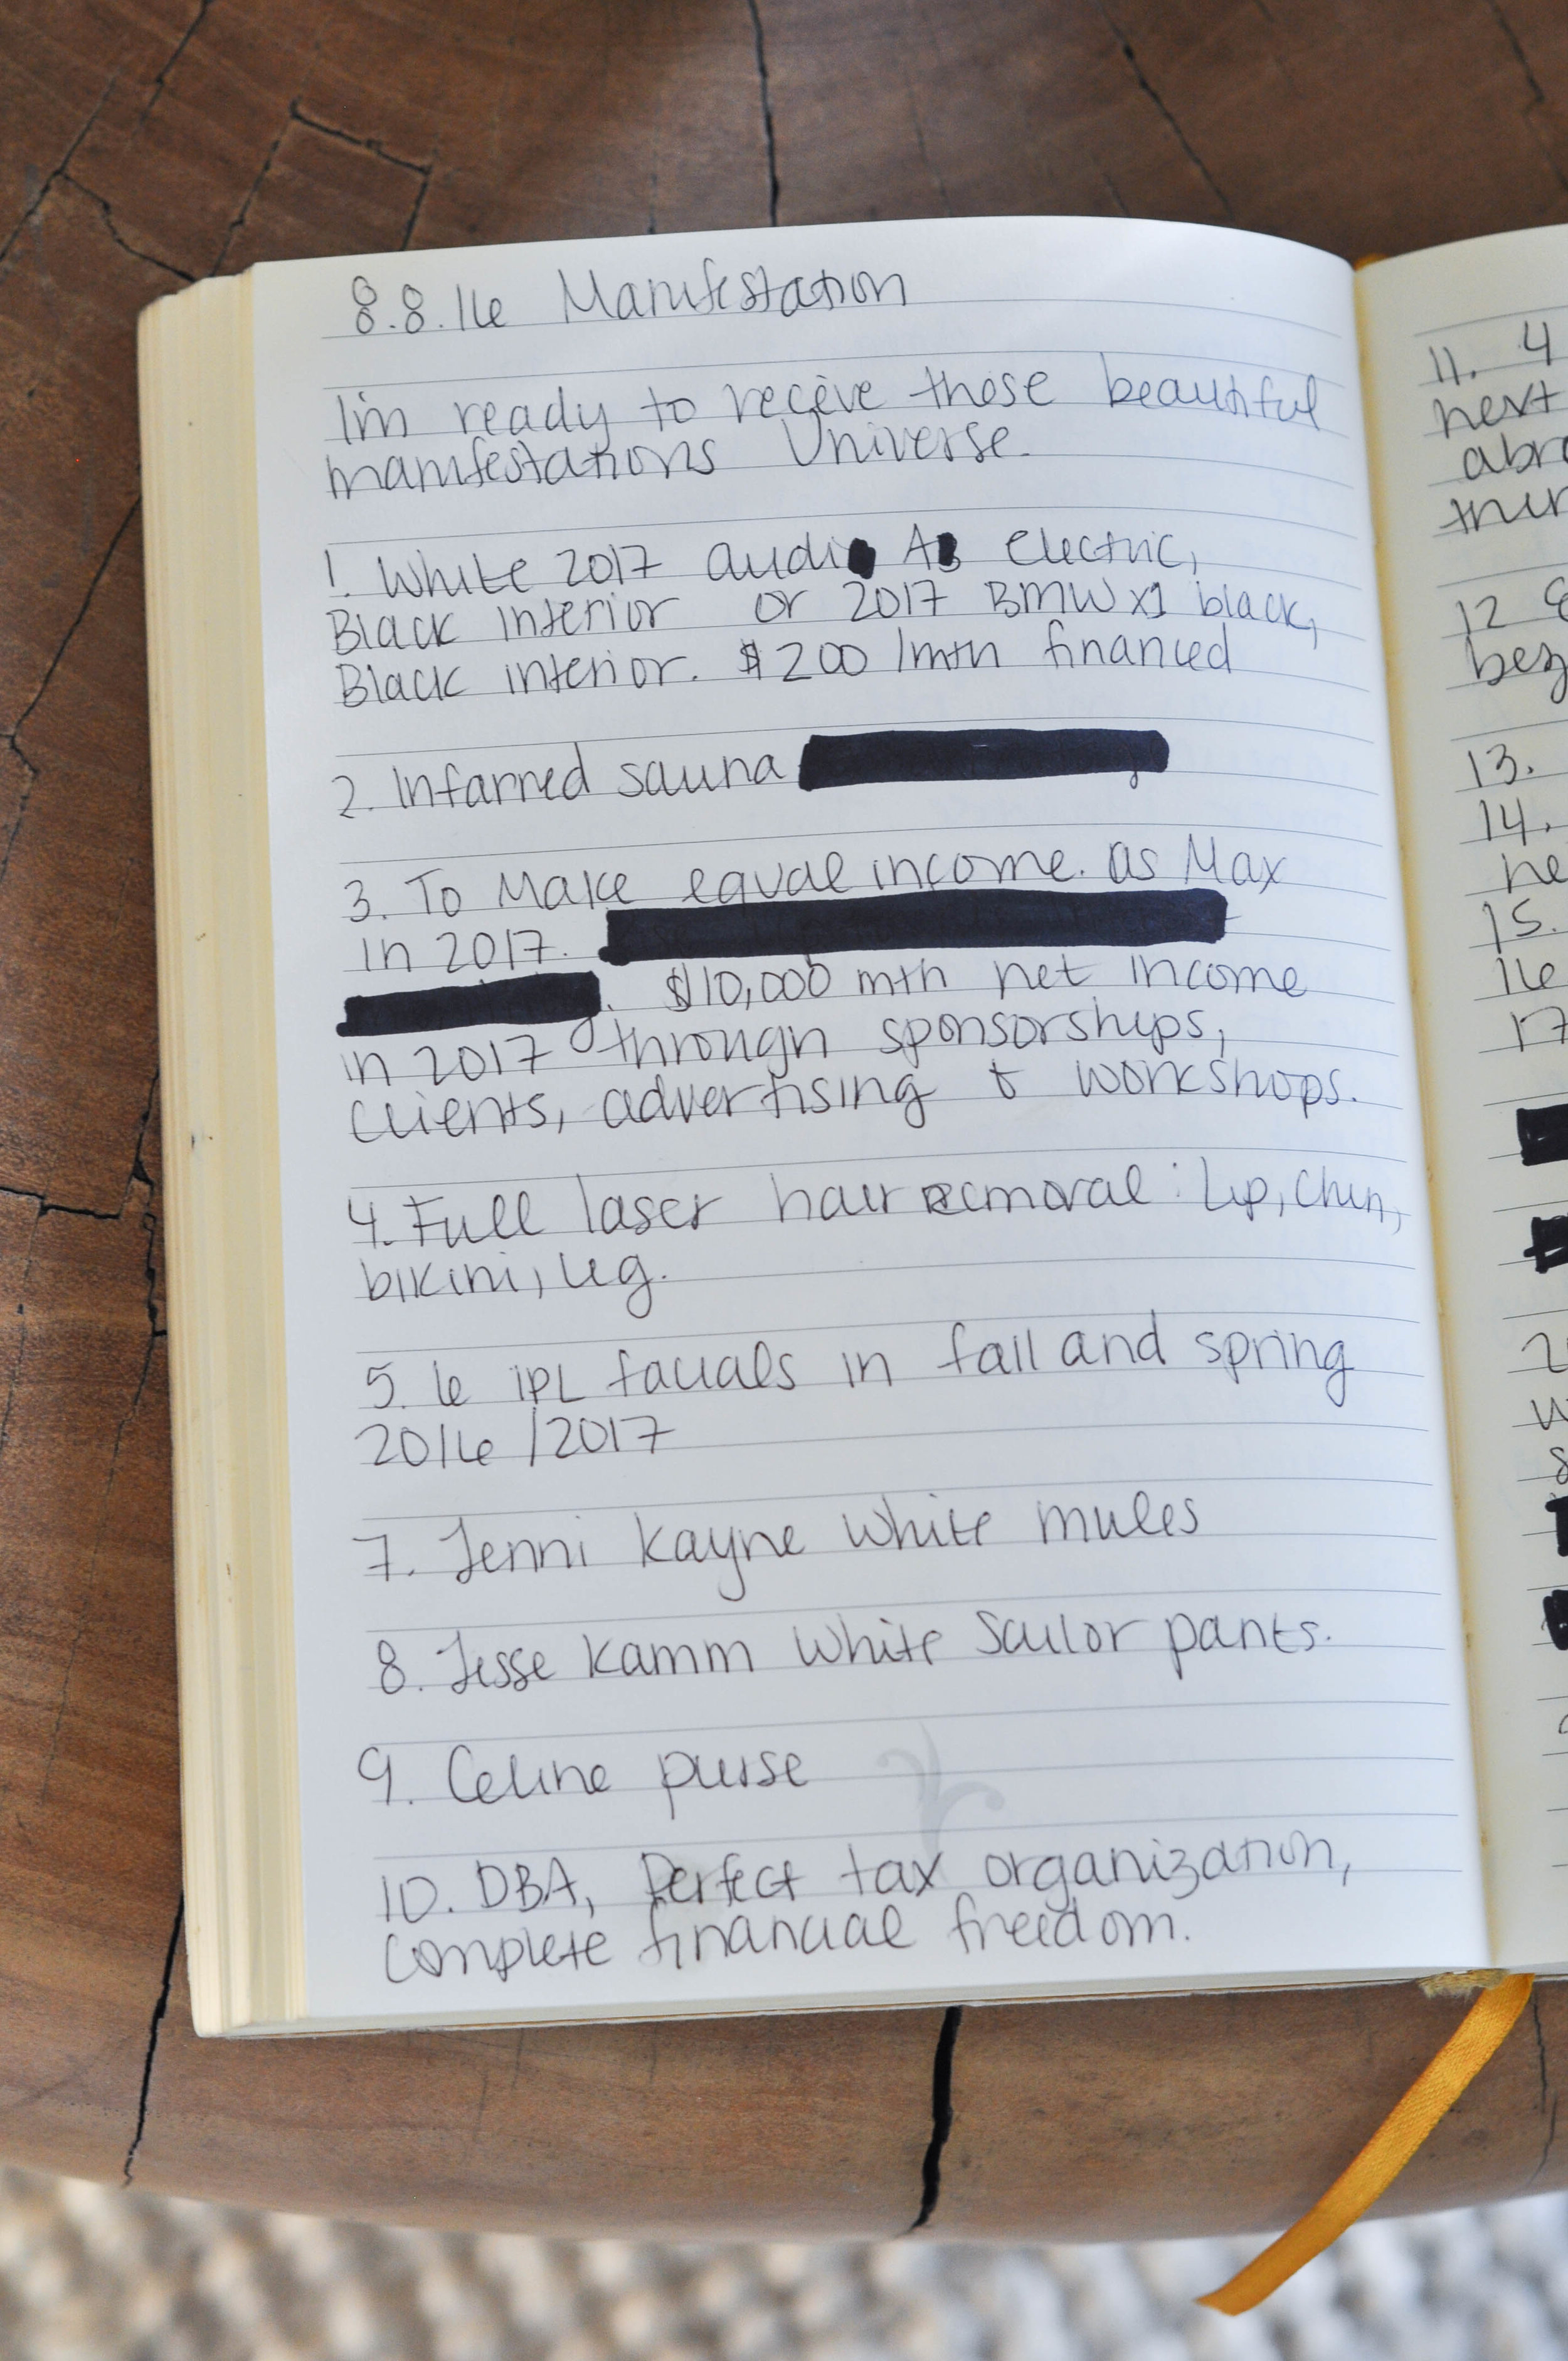 8.8.16 Manifestation
I'm ready to receive those beautiful
manifestations Universe.
1. White 2017 audi A3 Electric,
Black Interior or 2017 BMW x1 black,
Black interior. $200 /mth financed
2. Infarred sauna
3. To Make equal income. as Max
in 2017.
. $10,000 mth net income
in 2017 through sponsorships,
clients, advertising & workshops.
4. Full laser hair removal: Lip, Chin,
bikini, leg.
5. 6 IPL facials in fall and spring
2016/2017
7. Jenni Kayne White mules
8. Jesse Kamm White Sailor pants.
9. Celine purse
10. DBA, Perfect tax organization,
complete financial freedom.
11. 4
next
12
13.
14.
he
15.
16
17